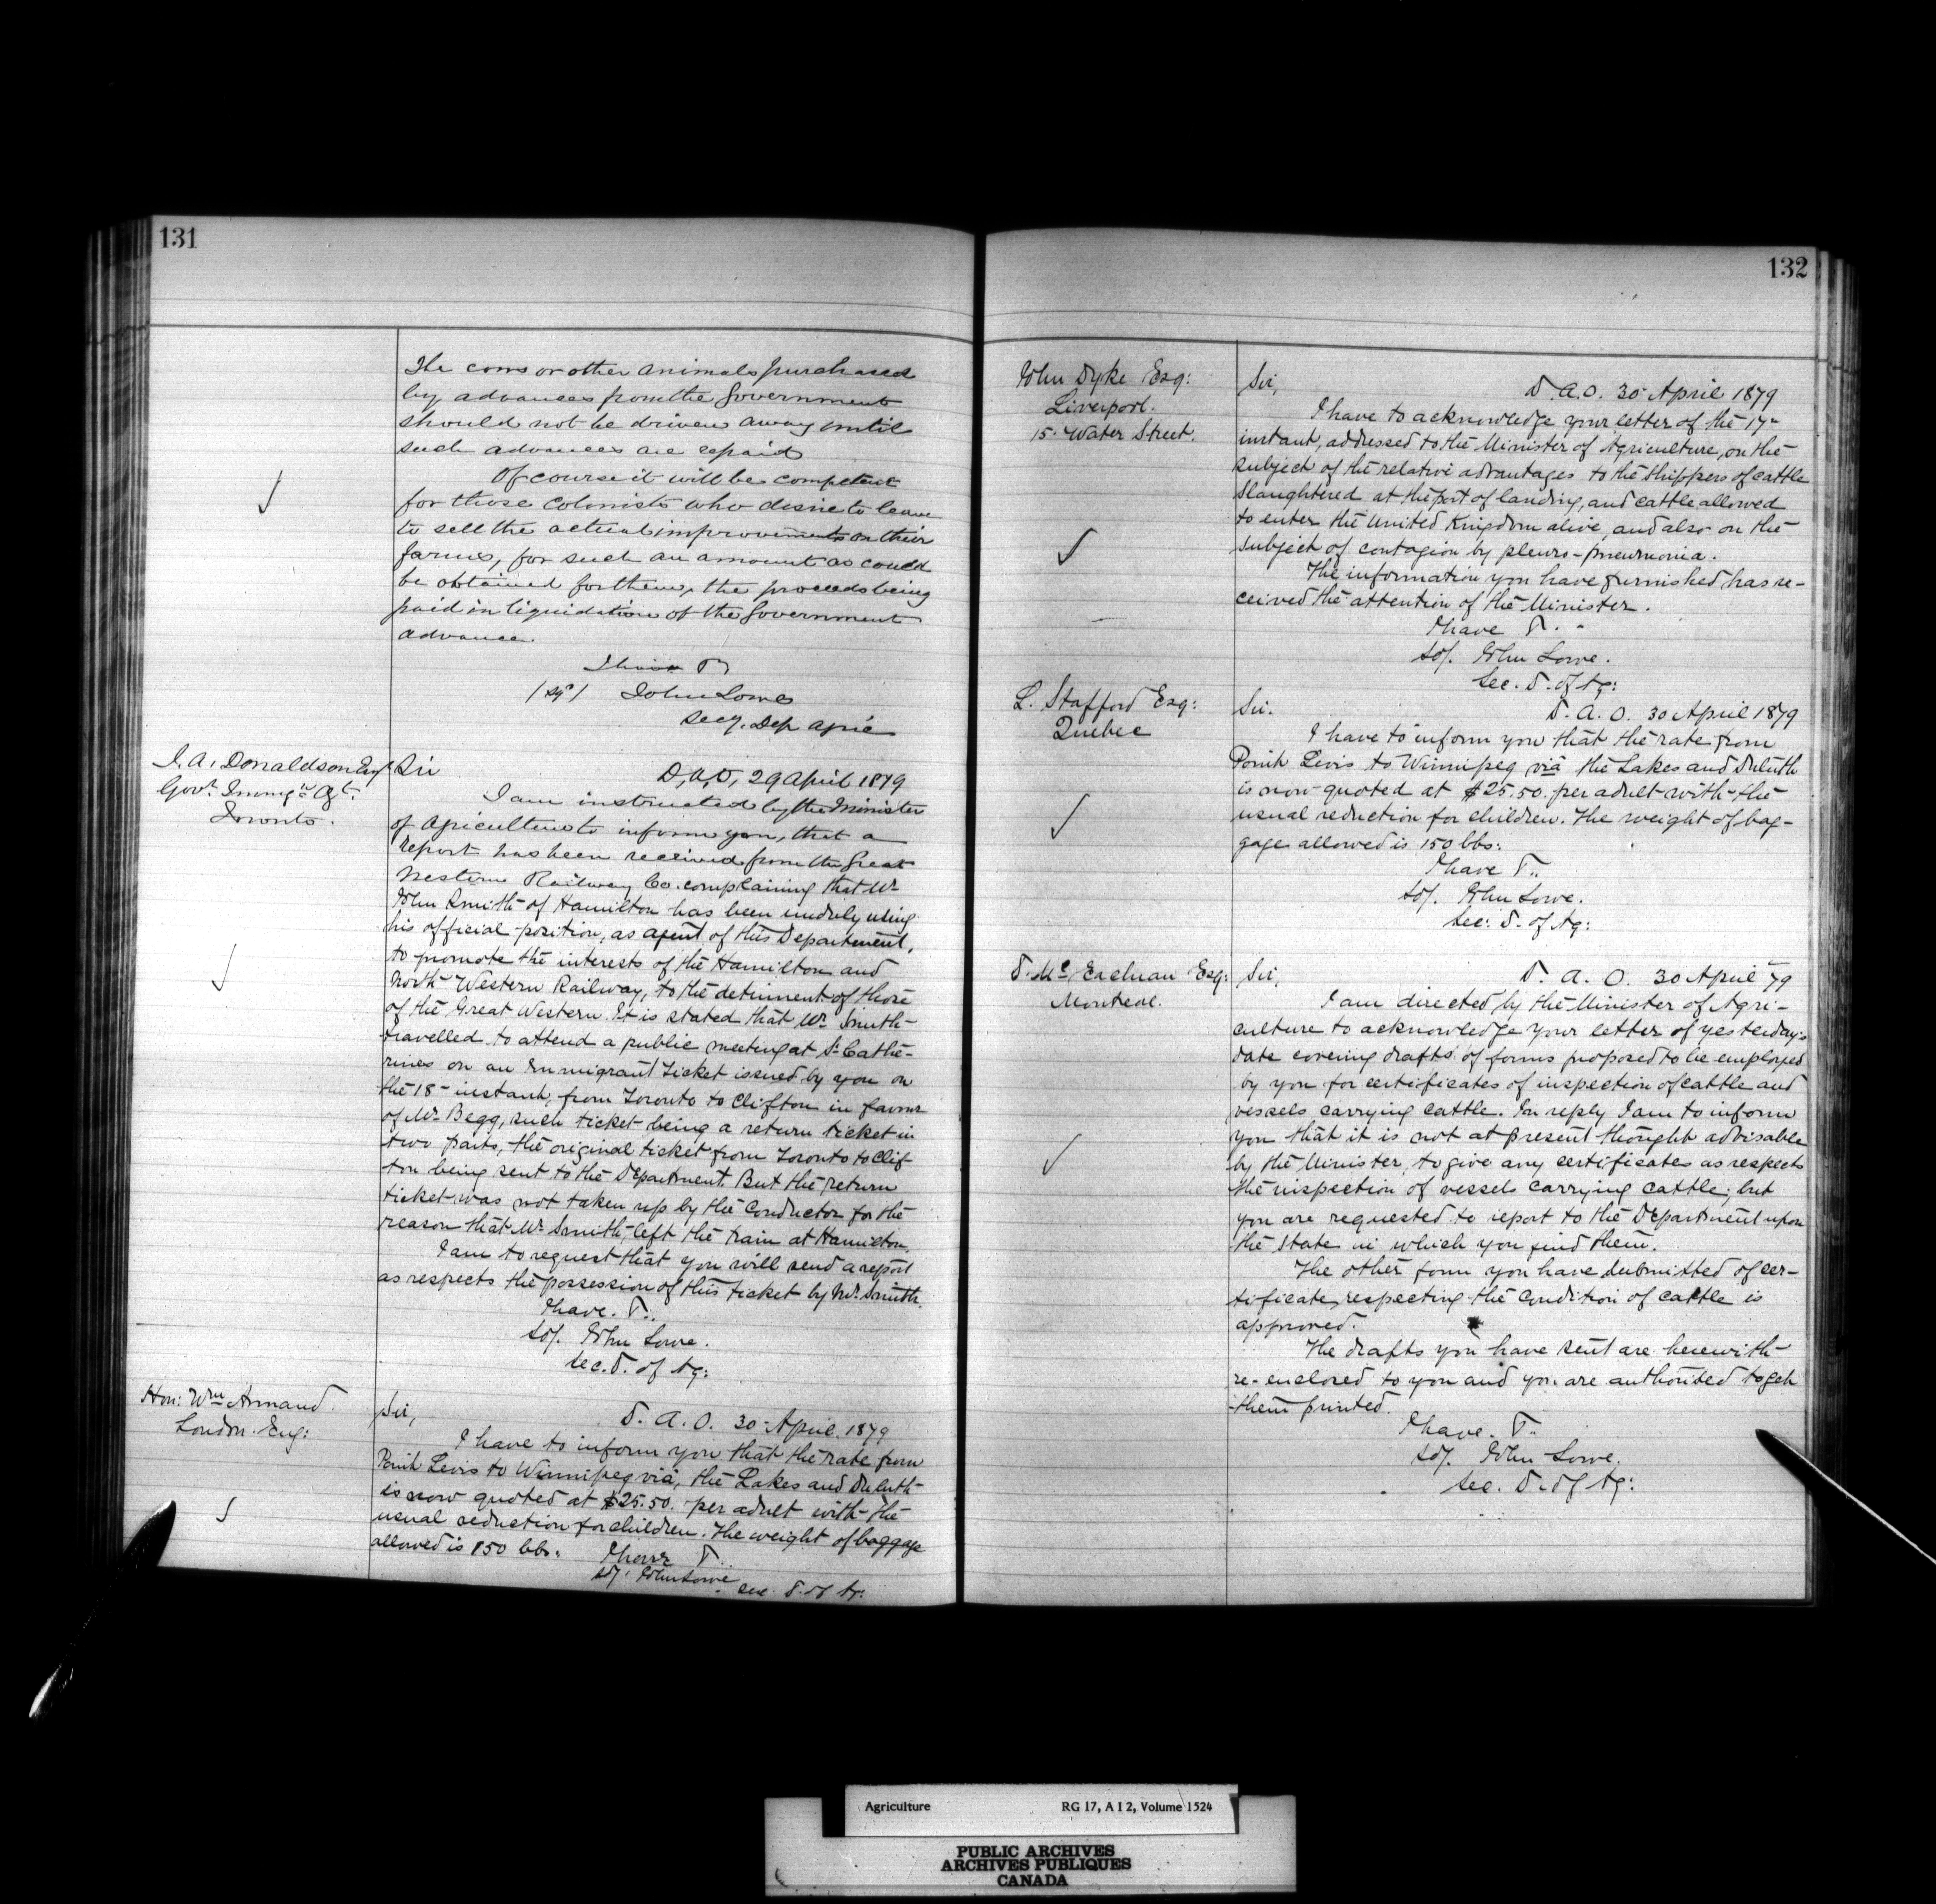 131
The cows or other animals purchased
by advances from the Government
should not be driven away until
such advances are repaid
Of course it will be competent
for those Colonists who desire to leave
to sell the actual improvements on their
farms, for such an amount as could
be obtained for them, the proceeds being
paid in liquidation of the Government
advance.
I have
John Lowe
Secy. Dep Agric
J. A. Donaldson Esq
Govt. Immgn Agt.
Toronto.
Sir
D, A, O, 29 April 1879
I am instructed by the Minister
of Agriculture to inform you, that a
report has been received from the Great
Western Railway Co. complaining that Mr
John Smith of Hamilton has been unduly using
his official position, as agent of this Department,
to promote the interests of the Hamilton and
North Western Railway, to the detriment of those
of the Great Western. It is stated that Mr Smith
travelled to attend a public meeting at St Cathe-
rines on an Immigrant Ticket issued by you on
the 18 instant, from Toronto to Clifton in favour
of Mr Begg, such ticket being a return ticket in
two parts, the original ticket from Toronto to Clif
ton being sent to the Department. But the return
ticket was not taken up by the Conductor for the
reason that Mr Smith, left the train at Hamilton.
I am to request that you will send a report
as respects the possession of this ticket by Mr. Smith.
I have.
sd/. John Lowe.
Sec. D. of Ag:
Hon: Wm Armand.
London. Eng:
Sir,
D. A. O. 30 April 1879
I have to inform you that the rate from
Point Levis to Winnipeg via, the Lakes and Duluth
is now quoted at $25.50. per adult with the
usual reduction for children. The weight of baggage
allowed is 150 lbs.
I have
sd/. John Lowe
Sec. D. of Ag:
132
John Dyke Esq:
Liverpool.
15. Water Street.
Sir,
D. A. O. 30 April 1879
I have to acknowledge your letter of the 17
instant, addressed to the Minister of Agriculture, on the
subject of the relative advantages to the shippers of cattle
slaughtered at the port of landing, and cattle allowed
to enter the United Kingdom alive, and also on the
subject of contagion by pleuro-pneumonia.
The information you have furnished has re-
ceived the attention of the Minister.
I have
sd/. John Lowe.
Sec. D. of Ag:
L. Stafford Esq:
Quebec
Sir.
D. A. O. 30 April 1879
I have to inform you that the rate from
Point Levis to Winnipeg via the Lakes and Duluth
is now quoted at $25.50. per adult with the
usual reduction for children. The weight of bag-
gage allowed is 150 lbs:
I have
sd/. John Lowe.
Sec: D. of Ag:
D. Mc Eachran Esq:
Montreal.
Sir,
D. A. O. 30 April 79
I am directed by the Minister of Agri-
culture to acknowledge your letter of yesterday's
date covering drafts of forms proposed to be employed
by you for certificates of inspection of cattle and
vessels carrying cattle. In reply I am to inform
you that it is not at present thought advisable
by the Minister, to give any certificates as respects
the inspection of vessels carrying cattle; but
you are requested to report to the Department upon
the state in which you find them.
The other form you have submitted of cer-
tificate, respecting the condition of cattle is
approved.
The drafts you have sent are herewith
re-enclosed to you and you are authorized to get
them printed.
I have.
sd/. John Lowe.
Sec. D. of Ag:
Agriculture RG 17, A I 2, Volume 1524
PUBLIC ARCHIVES
ARCHIVES PUBLIQUES
CANADA